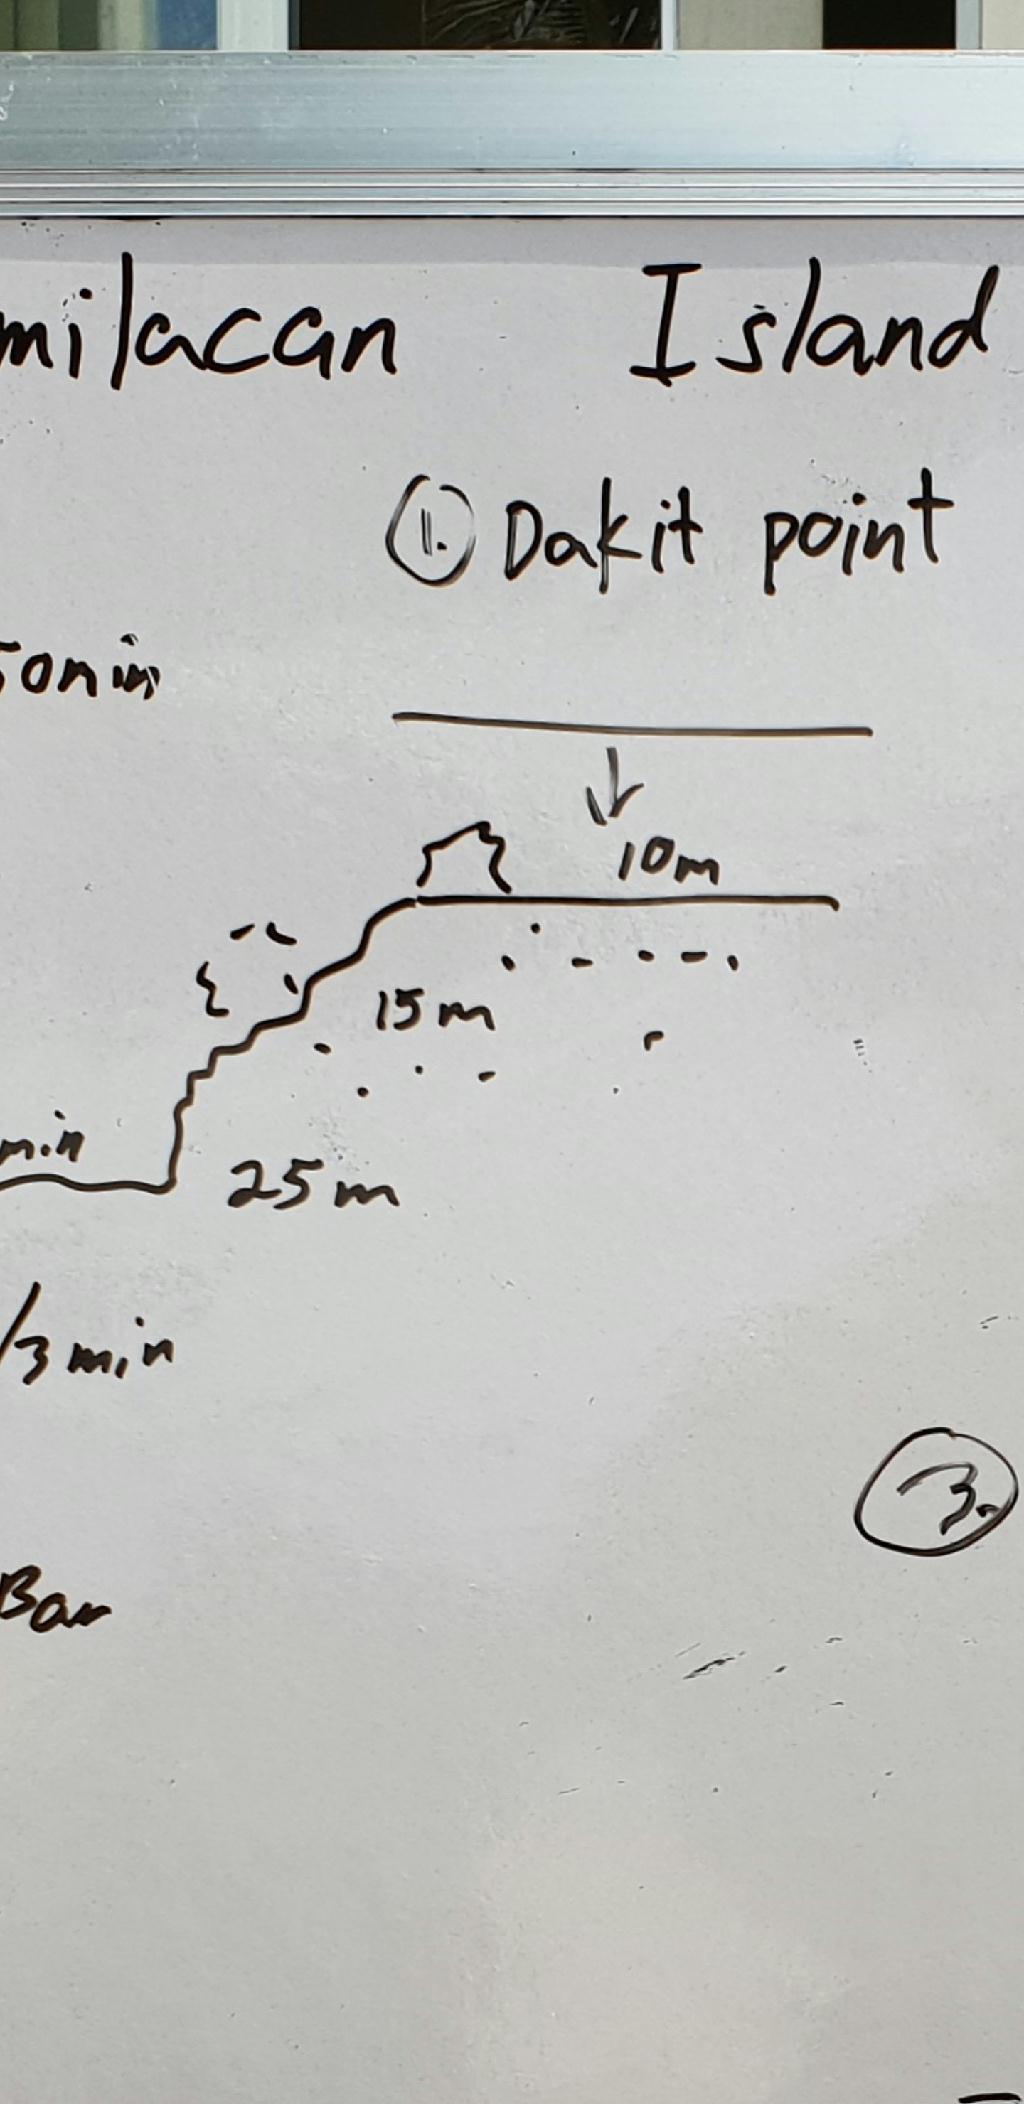 milacan Island
①. Dakit point
50min
10m
15m
min
25m
/3min
③.
Bar